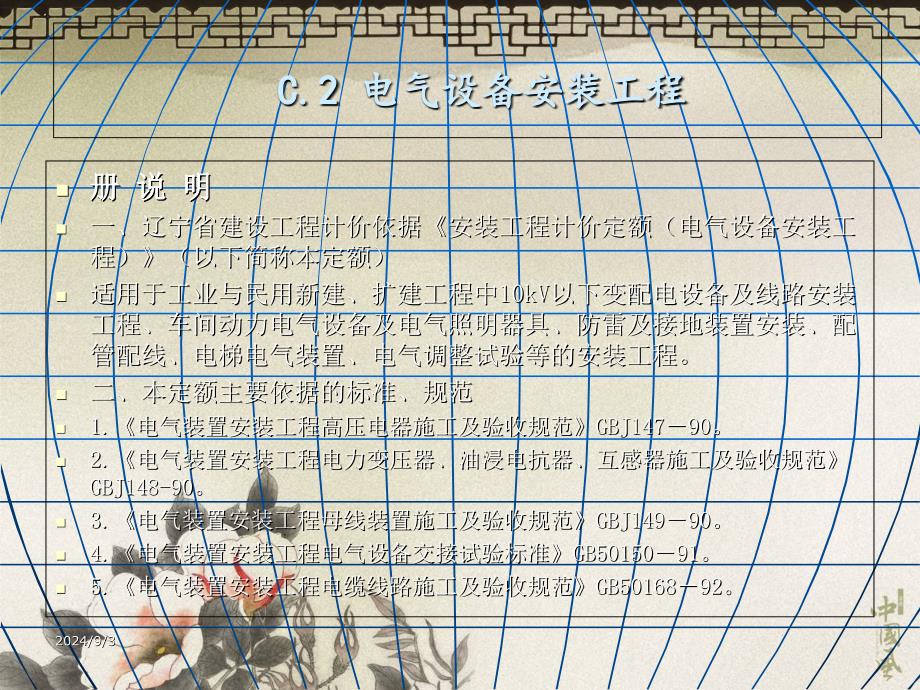 C.2 电气设备安装工程
册 说 明
一、辽宁省建设工程计价依据《安装工程计价定额（电气设备安装工
程）》（以下简称本定额）
适用于工业与民用新建、扩建工程中10kV以下变配电设备及线路安装
工程、车间动力电气设备及电气照明器具、防雷及接地装置安装、配
管配线、电梯电气装置、电气调整试验等的安装工程。
二、本定额主要依据的标准、规范
1.《电气装置安装工程高压电器施工及验收规范》GBJ147－90。
2.《电气装置安装工程电力变压器、油浸电抗器、互感器施工及验收规范》
GBJ148-90。
3.《电气装置安装工程母线装置施工及验收规范》GBJ149－90。
4.《电气装置安装工程电气设备交接试验标准》GB50150－91。
5.《电气装置安装工程电缆线路施工及验收规范》GB50168－92。
2024/9/3
中國风